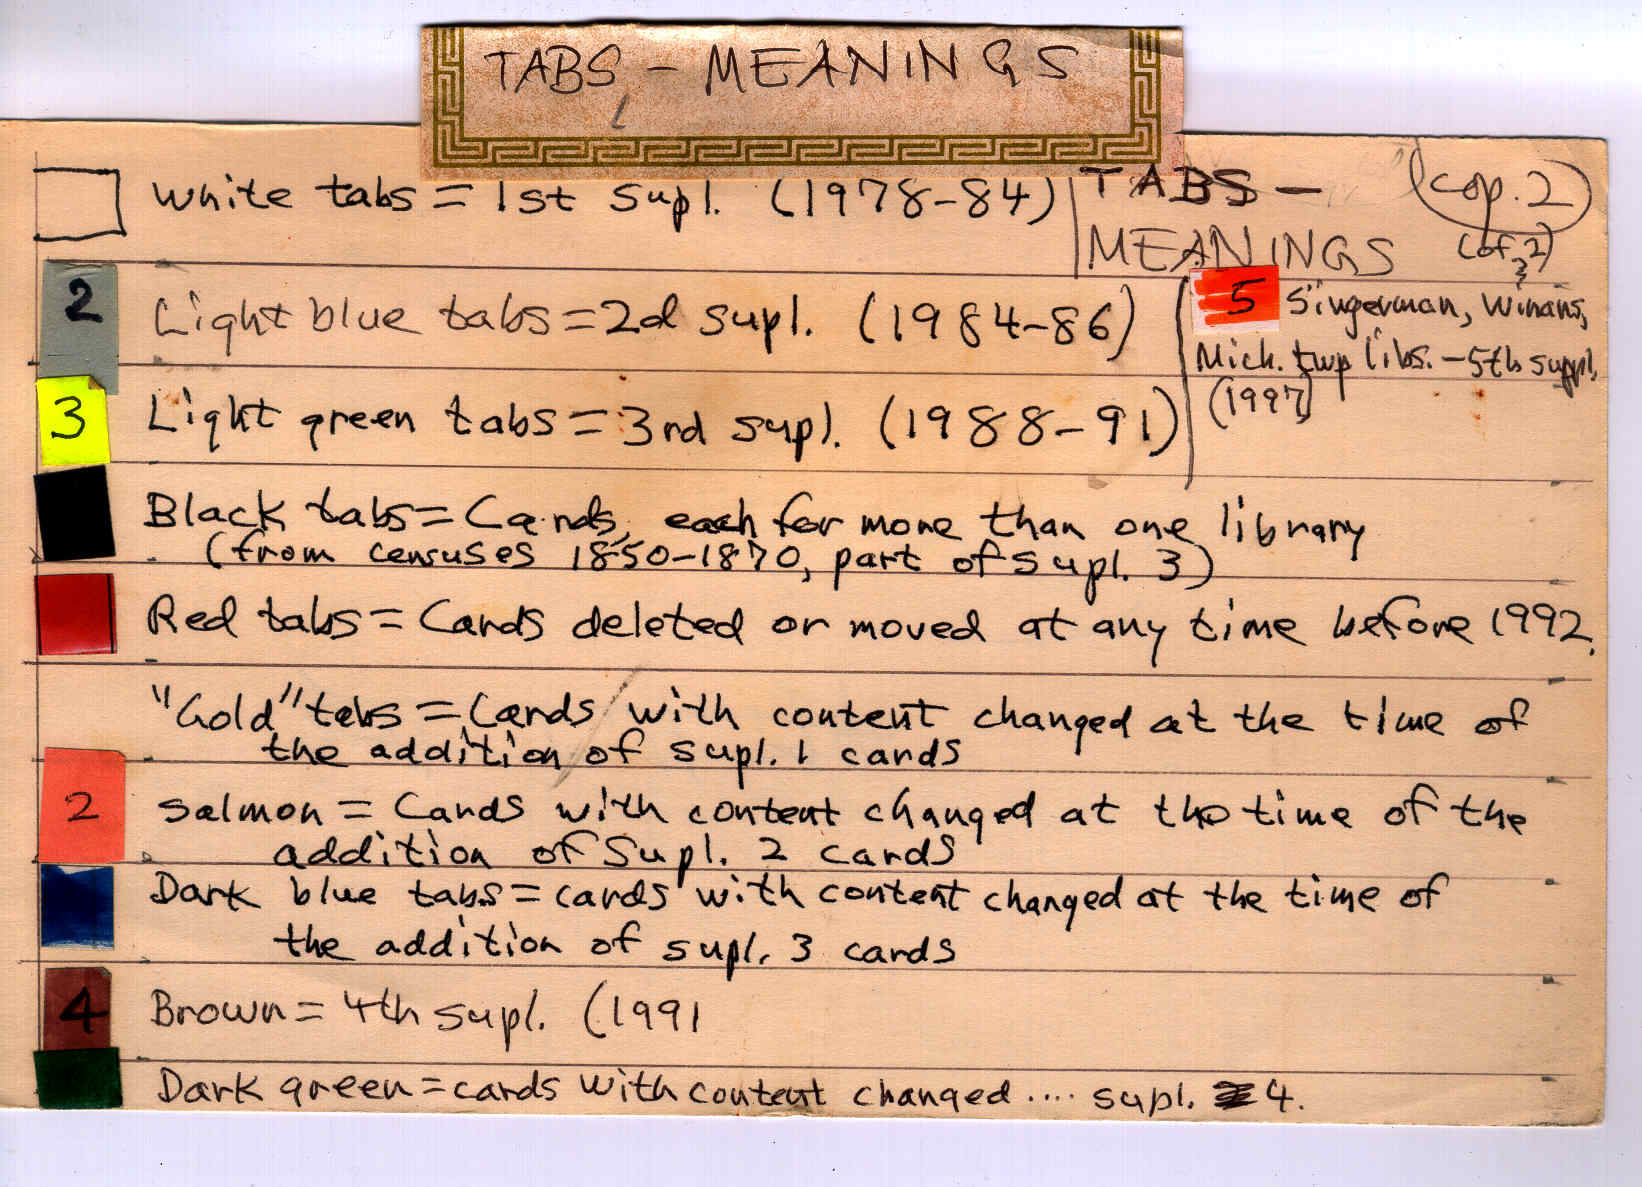 TABS - MEANINGS
White tabs = 1st supl. (1978-84)
TABS -
MEANINGS
cop. 2
(of 2)
2
Light blue tabs = 2d supl. (1984-86)
5 Singerman, Winans,
Mich. twp libs. - 5th suppl.
(1997)
3
Light green tabs = 3rd supl. (1988-91)
Black tabs = Cards, each for more than one library
(from censuses 1850-1870, part of supl. 3)
Red tabs = Cards deleted or moved at any time before 1992.
"Gold" tabs = Cards with content changed at the time of
the addition of supl. 1 cards
2
Salmon = Cards with content changed at the time of the
addition of supl. 2 cards
Dark blue tabs = cards with content changed at the time of
the addition of supl. 3 cards
4
Brown = 4th supl. (1991
Dark green = cards with content changed .... supl. 4.